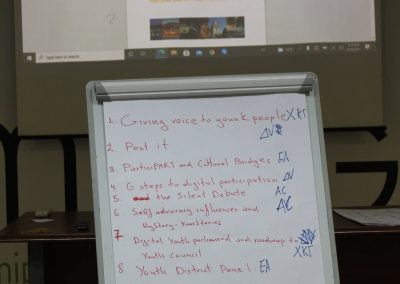 Type here to search
1. Giving voice to youak people XKT
ΔV
2. Post it
3. ParticiPART and Cultural Bridges EA
4. 6 steps to digital participation ΔV
5. the Silent Debate AC
6 Self advocacy influencer and AC
MyStory-YourStories
7 Digital Youth parliament and roadmap to
Youth Council XKT
8. Youth District Panel EA
nip